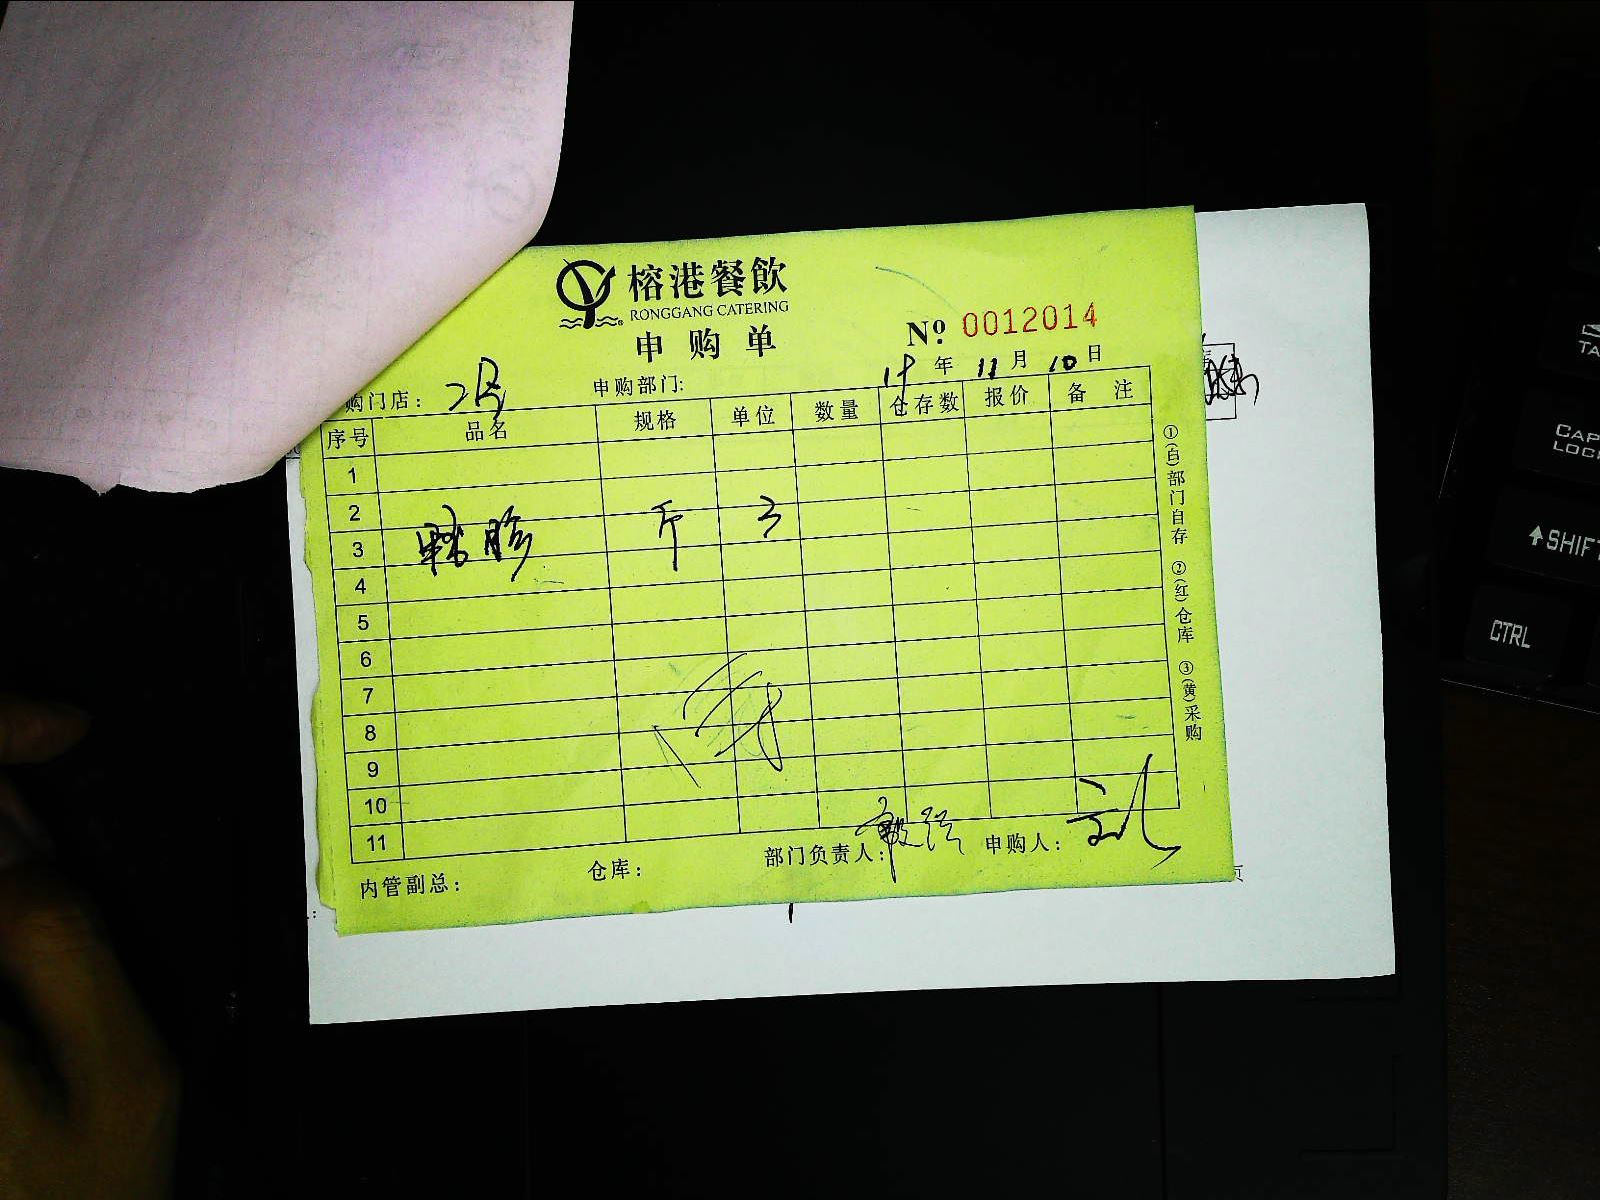 榕港餐飲
RONGGANG CATERING
申购单
№ 0012014
年 11 月 10 日
购门店： 二店 申购部门:
序号 品名 规格 单位 数量 仓存数 报价 备注
1
2
3 鸭胗 斤 3
4
5
6
7
8
9
10
11
内管副总： 仓库： 部门负责人： 申购人：
①(白)部门自存 ②(红)仓库 ③(黄)采购
页
CAP
LOC
SHIF
CTRL
TA